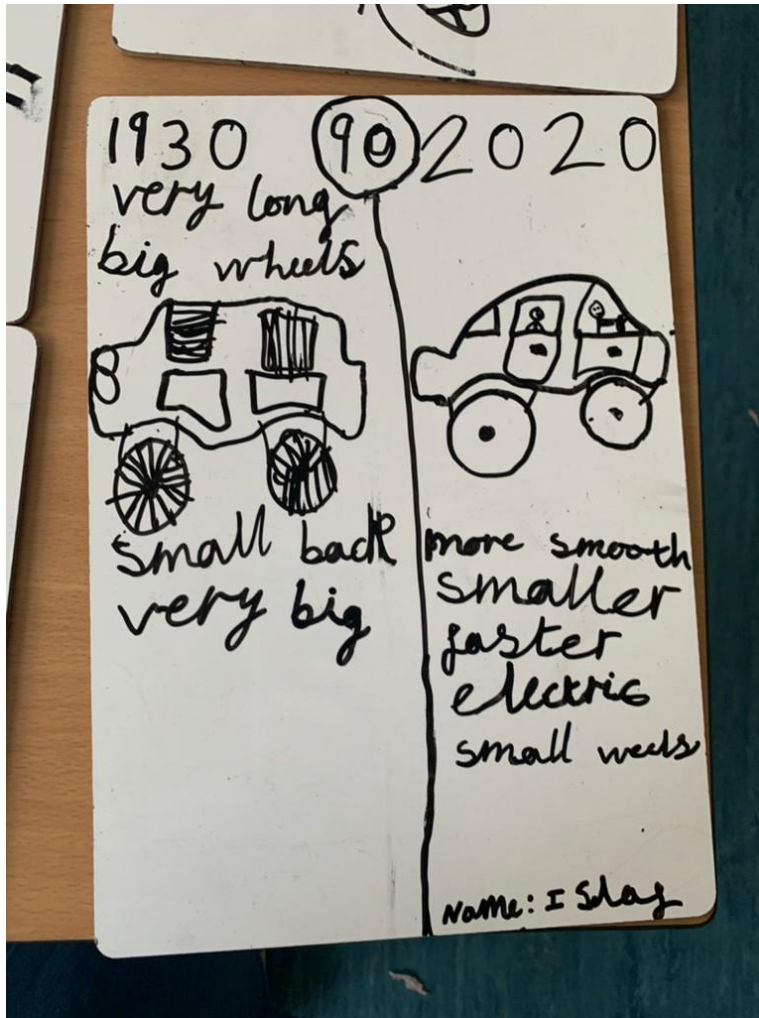 1930
90
2020
very long
big wheels
small back
very big
more smooth
smaller
faster
electric
small weels
Name: I